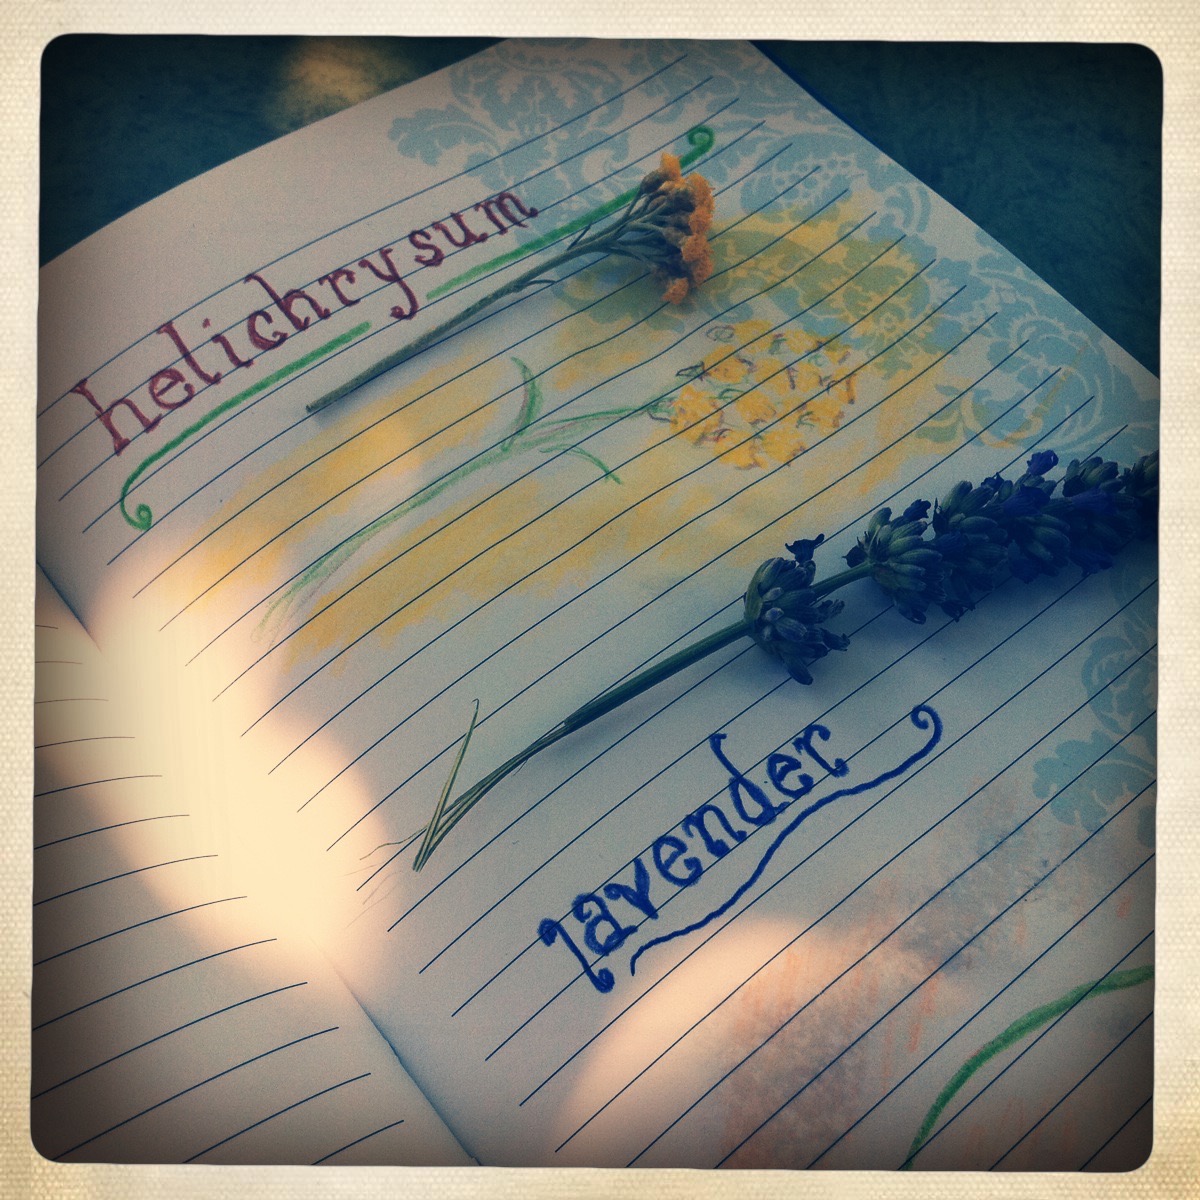 helichrysum
lavender